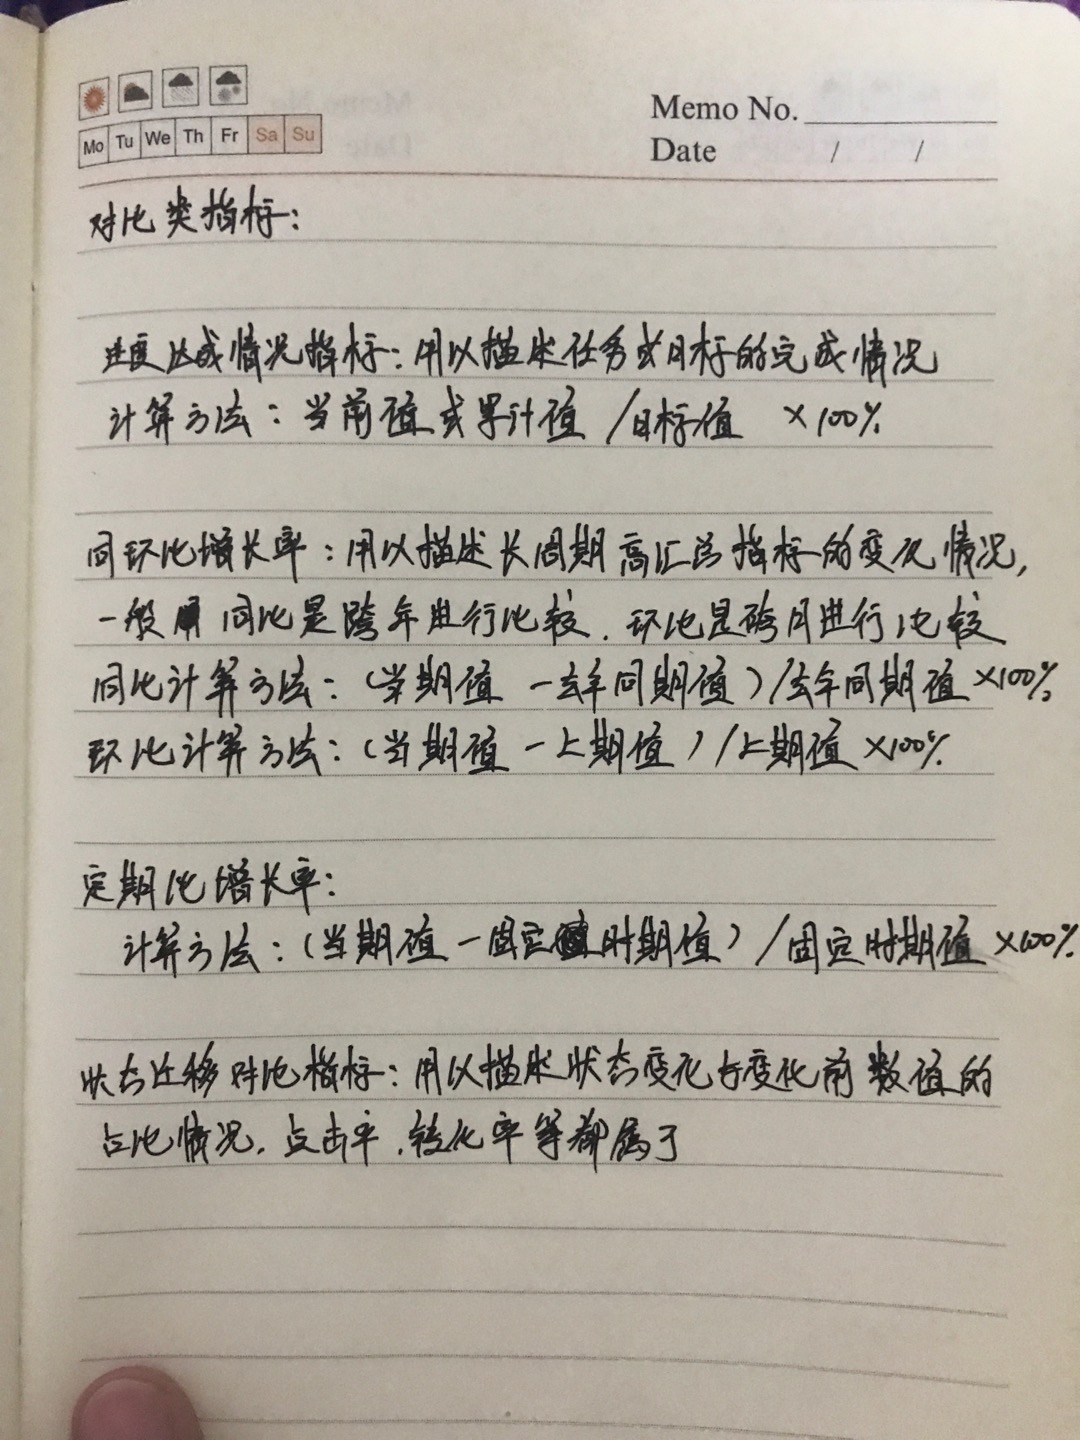 Mo Tu We Th Fr Sa Su
Memo No.
Date / /
对比类指标:
进度达成情况指标:用以描述任务或目标的完成情况
计算方法:当前值或累计值/目标值 ×100%
同环比增长率:用以描述长周期高汇总指标的变化情况,
一般 同比是跨年进行比较.环比是跨月进行比较
同比计算方法:(当期值-去年同期值)/去年同期值×100%
环比计算方法:(当期值-上期值)/上期值×100%
定期比增长率:
计算方法:(当期值-固定时期值)/固定时期值×100%
状态迁移对比指标:用以描述状态变化与变化前数值的
占比情况.点击率.转化率等都属于